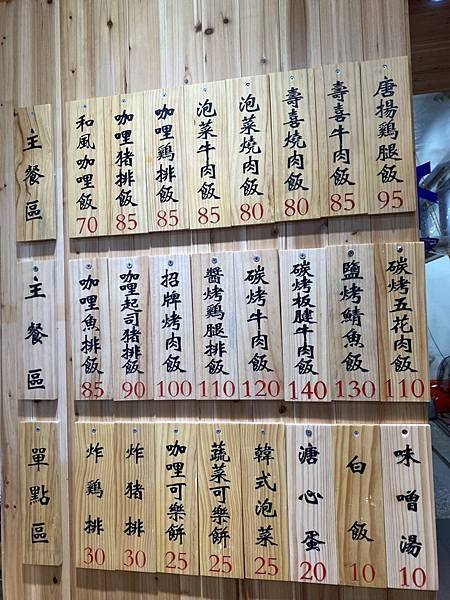 主餐區
和風咖哩飯 70
咖哩豬排飯 85
咖哩鷄排飯 85
泡菜牛肉飯 85
泡菜燒肉飯 80
壽喜燒肉飯 80
壽喜牛肉飯 85
唐揚鷄腿飯 95
主餐區
咖哩魚排飯 85
咖哩起司豬排飯 90
招牌烤肉飯 100
醬烤鷄腿排飯 110
碳烤牛肉飯 120
碳烤板腱牛肉飯 140
鹽烤鯖魚飯 130
碳烤五花肉飯 110
單點區
炸鷄排 30
炸豬排 30
咖哩可樂餅 25
蔬菜可樂餅 25
韓式泡菜 25
溏心蛋 20
白飯 10
味噌湯 10